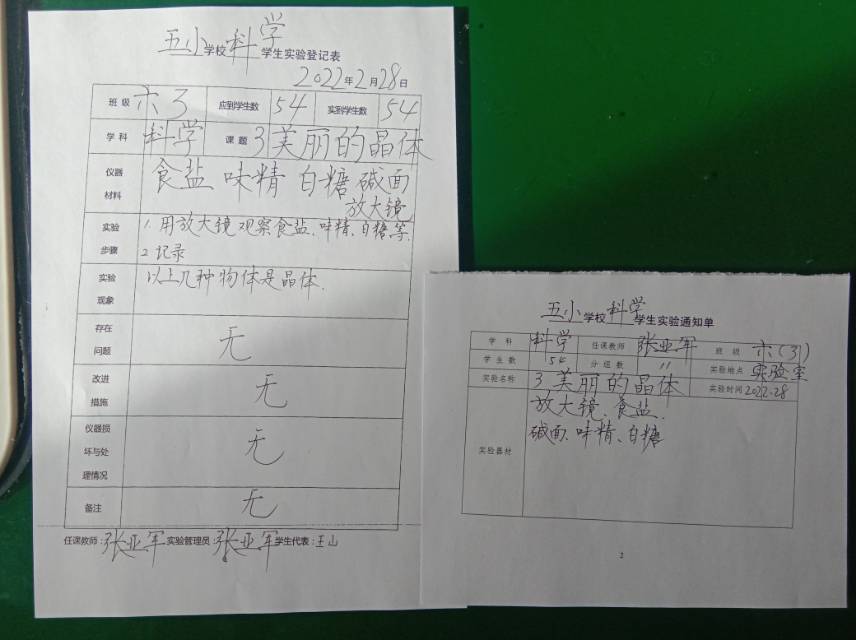 五小学校科学学生实验登记表
2022年2月28日
班级 六3 应到学生数 54 实到学生数 54
学科 科学 课题 3美丽的晶体
仪器材料 食盐 味精 白糖 碱面
放大镜
实验步骤 1.用放大镜观察食盐、味精、白糖等.
2 记录
实验现象 以上几种物体是晶体.
存在问题 无
改进措施 无
仪器损坏与处理情况 无
备注 无
任课教师:张亚军 实验管理员:张亚军 学生代表:王山
五小学校科学学生实验通知单
学科 科学 任课教师 张亚军 班级 六(3)
学生数 54 分组数 11 实验地点 实验室
实验名称 3美丽的晶体 实验时间 2022.28
实验器材 放大镜、食盐、
碱面、味精、白糖
2